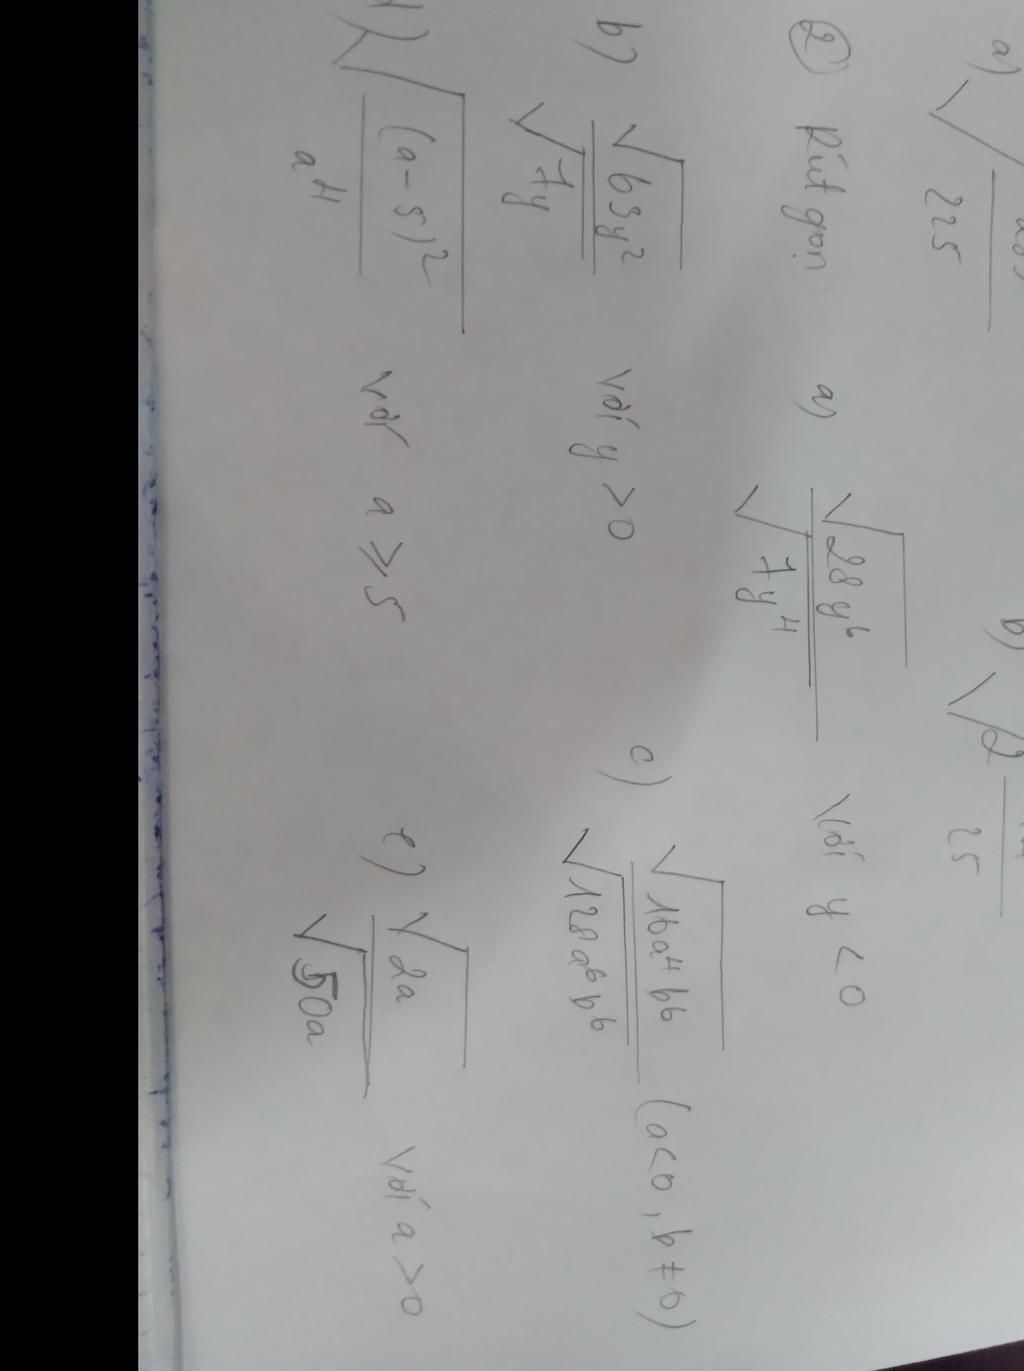 a) √(289/225) b) √(2 14/25)
② Rút gọn: a) √(28y⁶)/√(7y⁴) với y < 0
b) √(63y²)/√(7y) với y > 0 c) √(16a⁴b⁶)/√(128a⁶b⁶) (a<0, b≠0)
d) √((a-5)²/a⁴) với a ≥ 5 e) √(2a)/√(50a) với a > 0